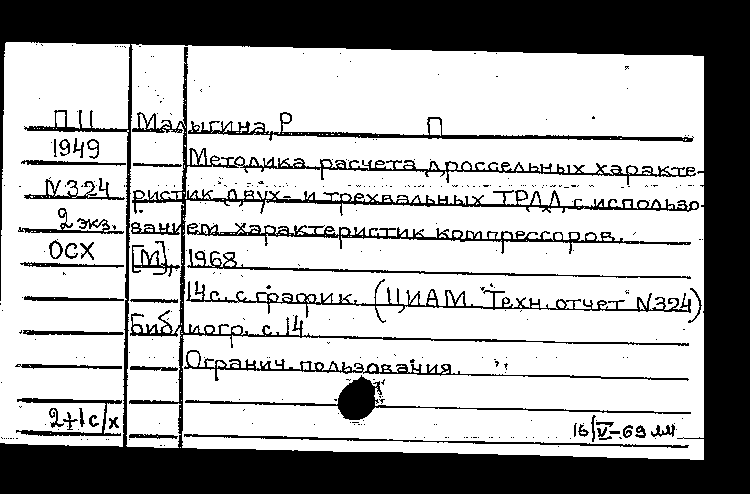 П II Малыгина, Р П
1949 Методика расчета дроссельных характе-
N324 ристик двух- и трехвальных ТРДД с использо-
2 экз. ванием характеристик компрессоров.
ОСХ [М], 1968.
14 с. с график. (ЦИАМ. Техн. отчет N324)
Библиогр. с. 14.
Огранич. пользования.
2+1 с/х 16/V-69 мм